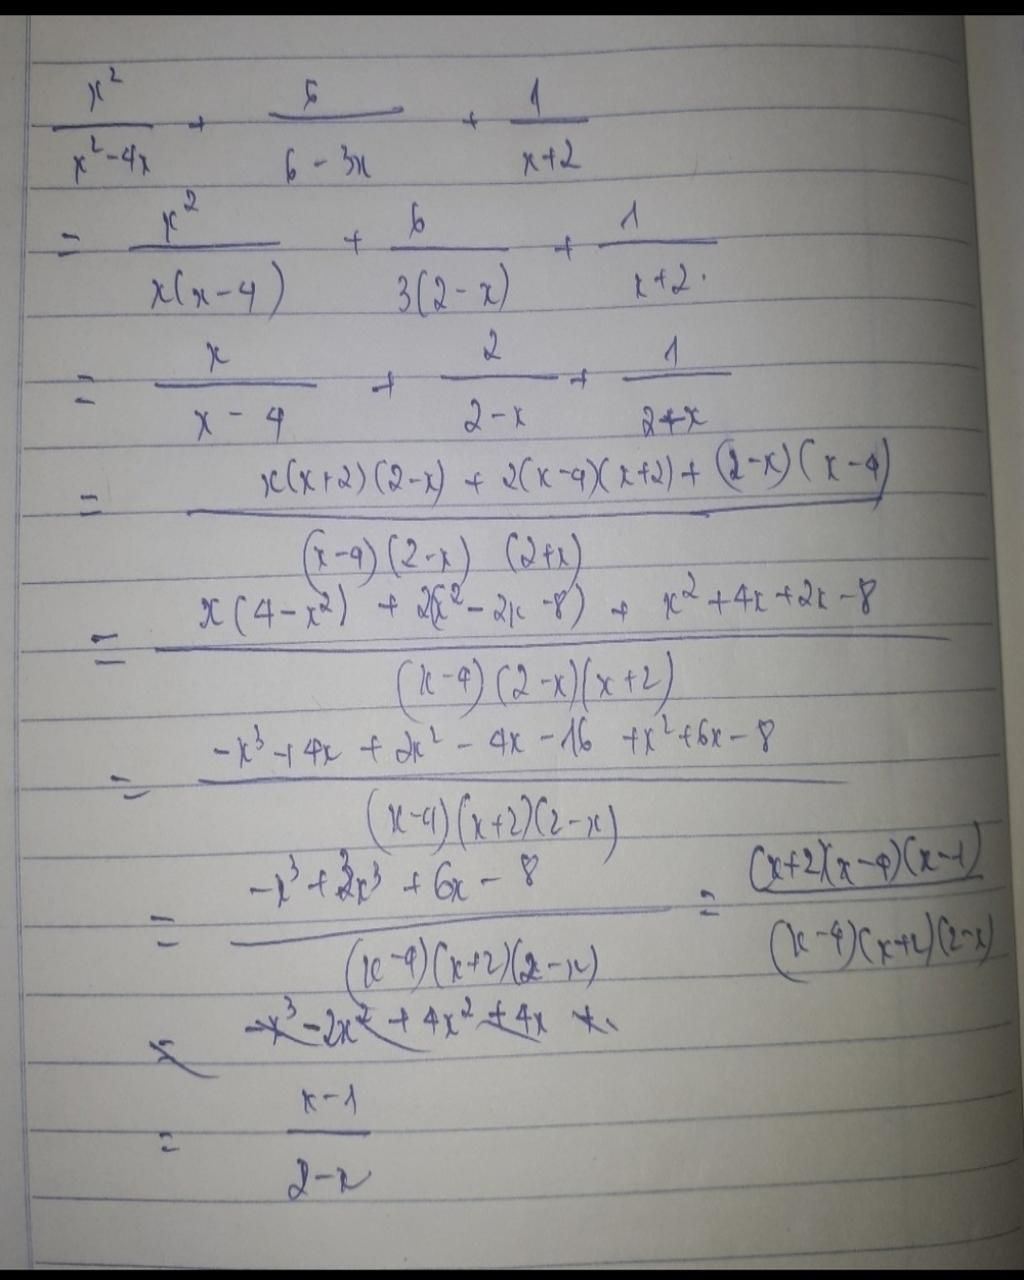 x²/(x²-4x) + 6/(6-3x) + 1/(x+2)
= x²/(x(x-4)) + 6/(3(2-x)) + 1/(x+2).
= x/(x-4) + 2/(2-x) + 1/(2+x)
= (x(x+2)(2-x) + 2(x-4)(x+2) + (2-x)(x-4))/((x-4)(2-x)(2+x))
= (x(4-x²) + 2(x²-2x-8) + x²+4x+2x-8)/((x-4)(2-x)(x+2))
= (-x³+4x+2x²-4x-16+x²+6x-8)/((x-4)(x+2)(2-x))
= (-x³+3x³+6x-8)/((x-4)(x+2)(2-x)) = ((x+2)(x-4)(x-1))/((x-4)(x+2)(2-x))
= -x³-2x²+4x²+4x+.
= (x-1)/(2-x)